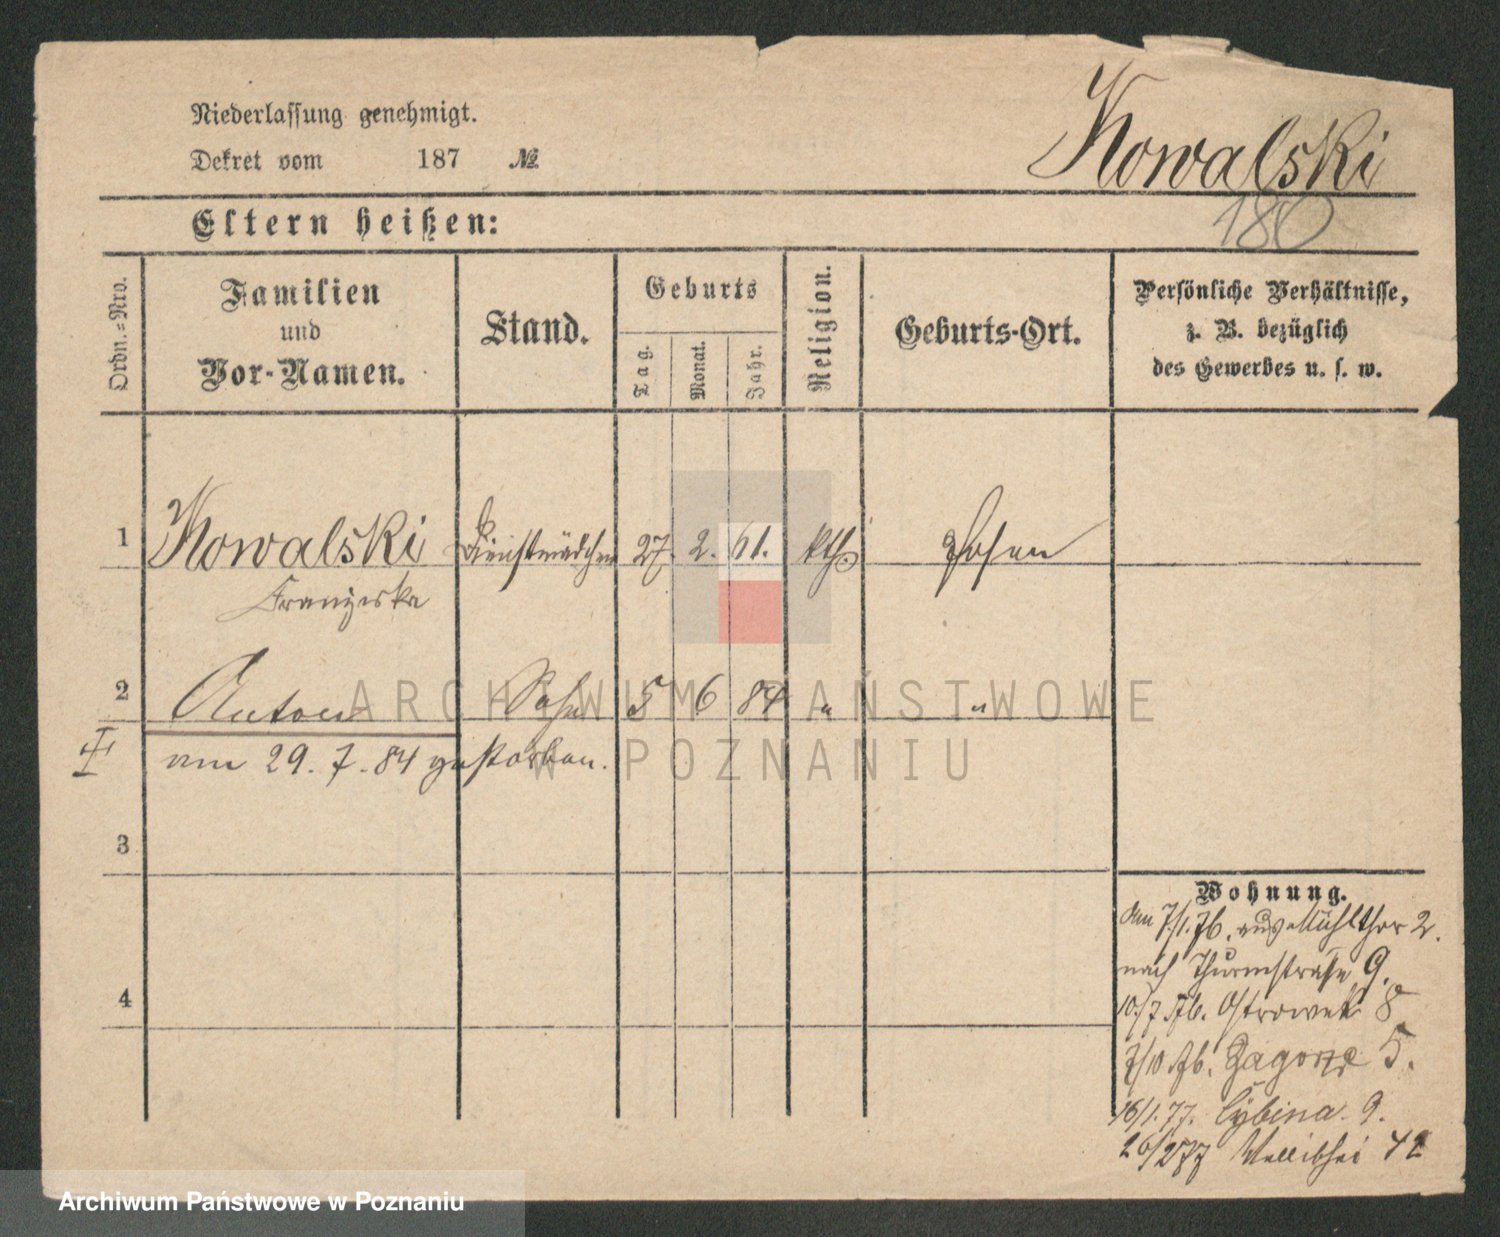 Niederlassung genehmigt.
Dekret vom 187 №
Kowalski
180
Eltern heißen:
Ordn.=Nro.
Familien
und
Vor-Namen.
Stand.
Geburts
Tag.
Monat.
Jahr.
Religion.
Geburts-Ort.
Persönliche Verhältnisse,
z. B. bezüglich
des Gewerbes u. s. w.
1 Kowalski Dienstmädchen 27. 2. 61. kth. Posen
Franziska
2 Anton Sohn 5 6 84 " "
am 29. 7. 84 gestorben.
3
4
Wohnung.
den 7/1. 76. aus Mühlthor 2.
nach Thurmstraße 9.
10/7 76. Ostrowek 8
7/10 76. Zagorze 5.
16/1. 77. Cybina 9.
26/2 77 Wallischei 42
ARCHIWUM PAŃSTWOWE
W POZNANIU
Archiwum Państwowe w Poznaniu